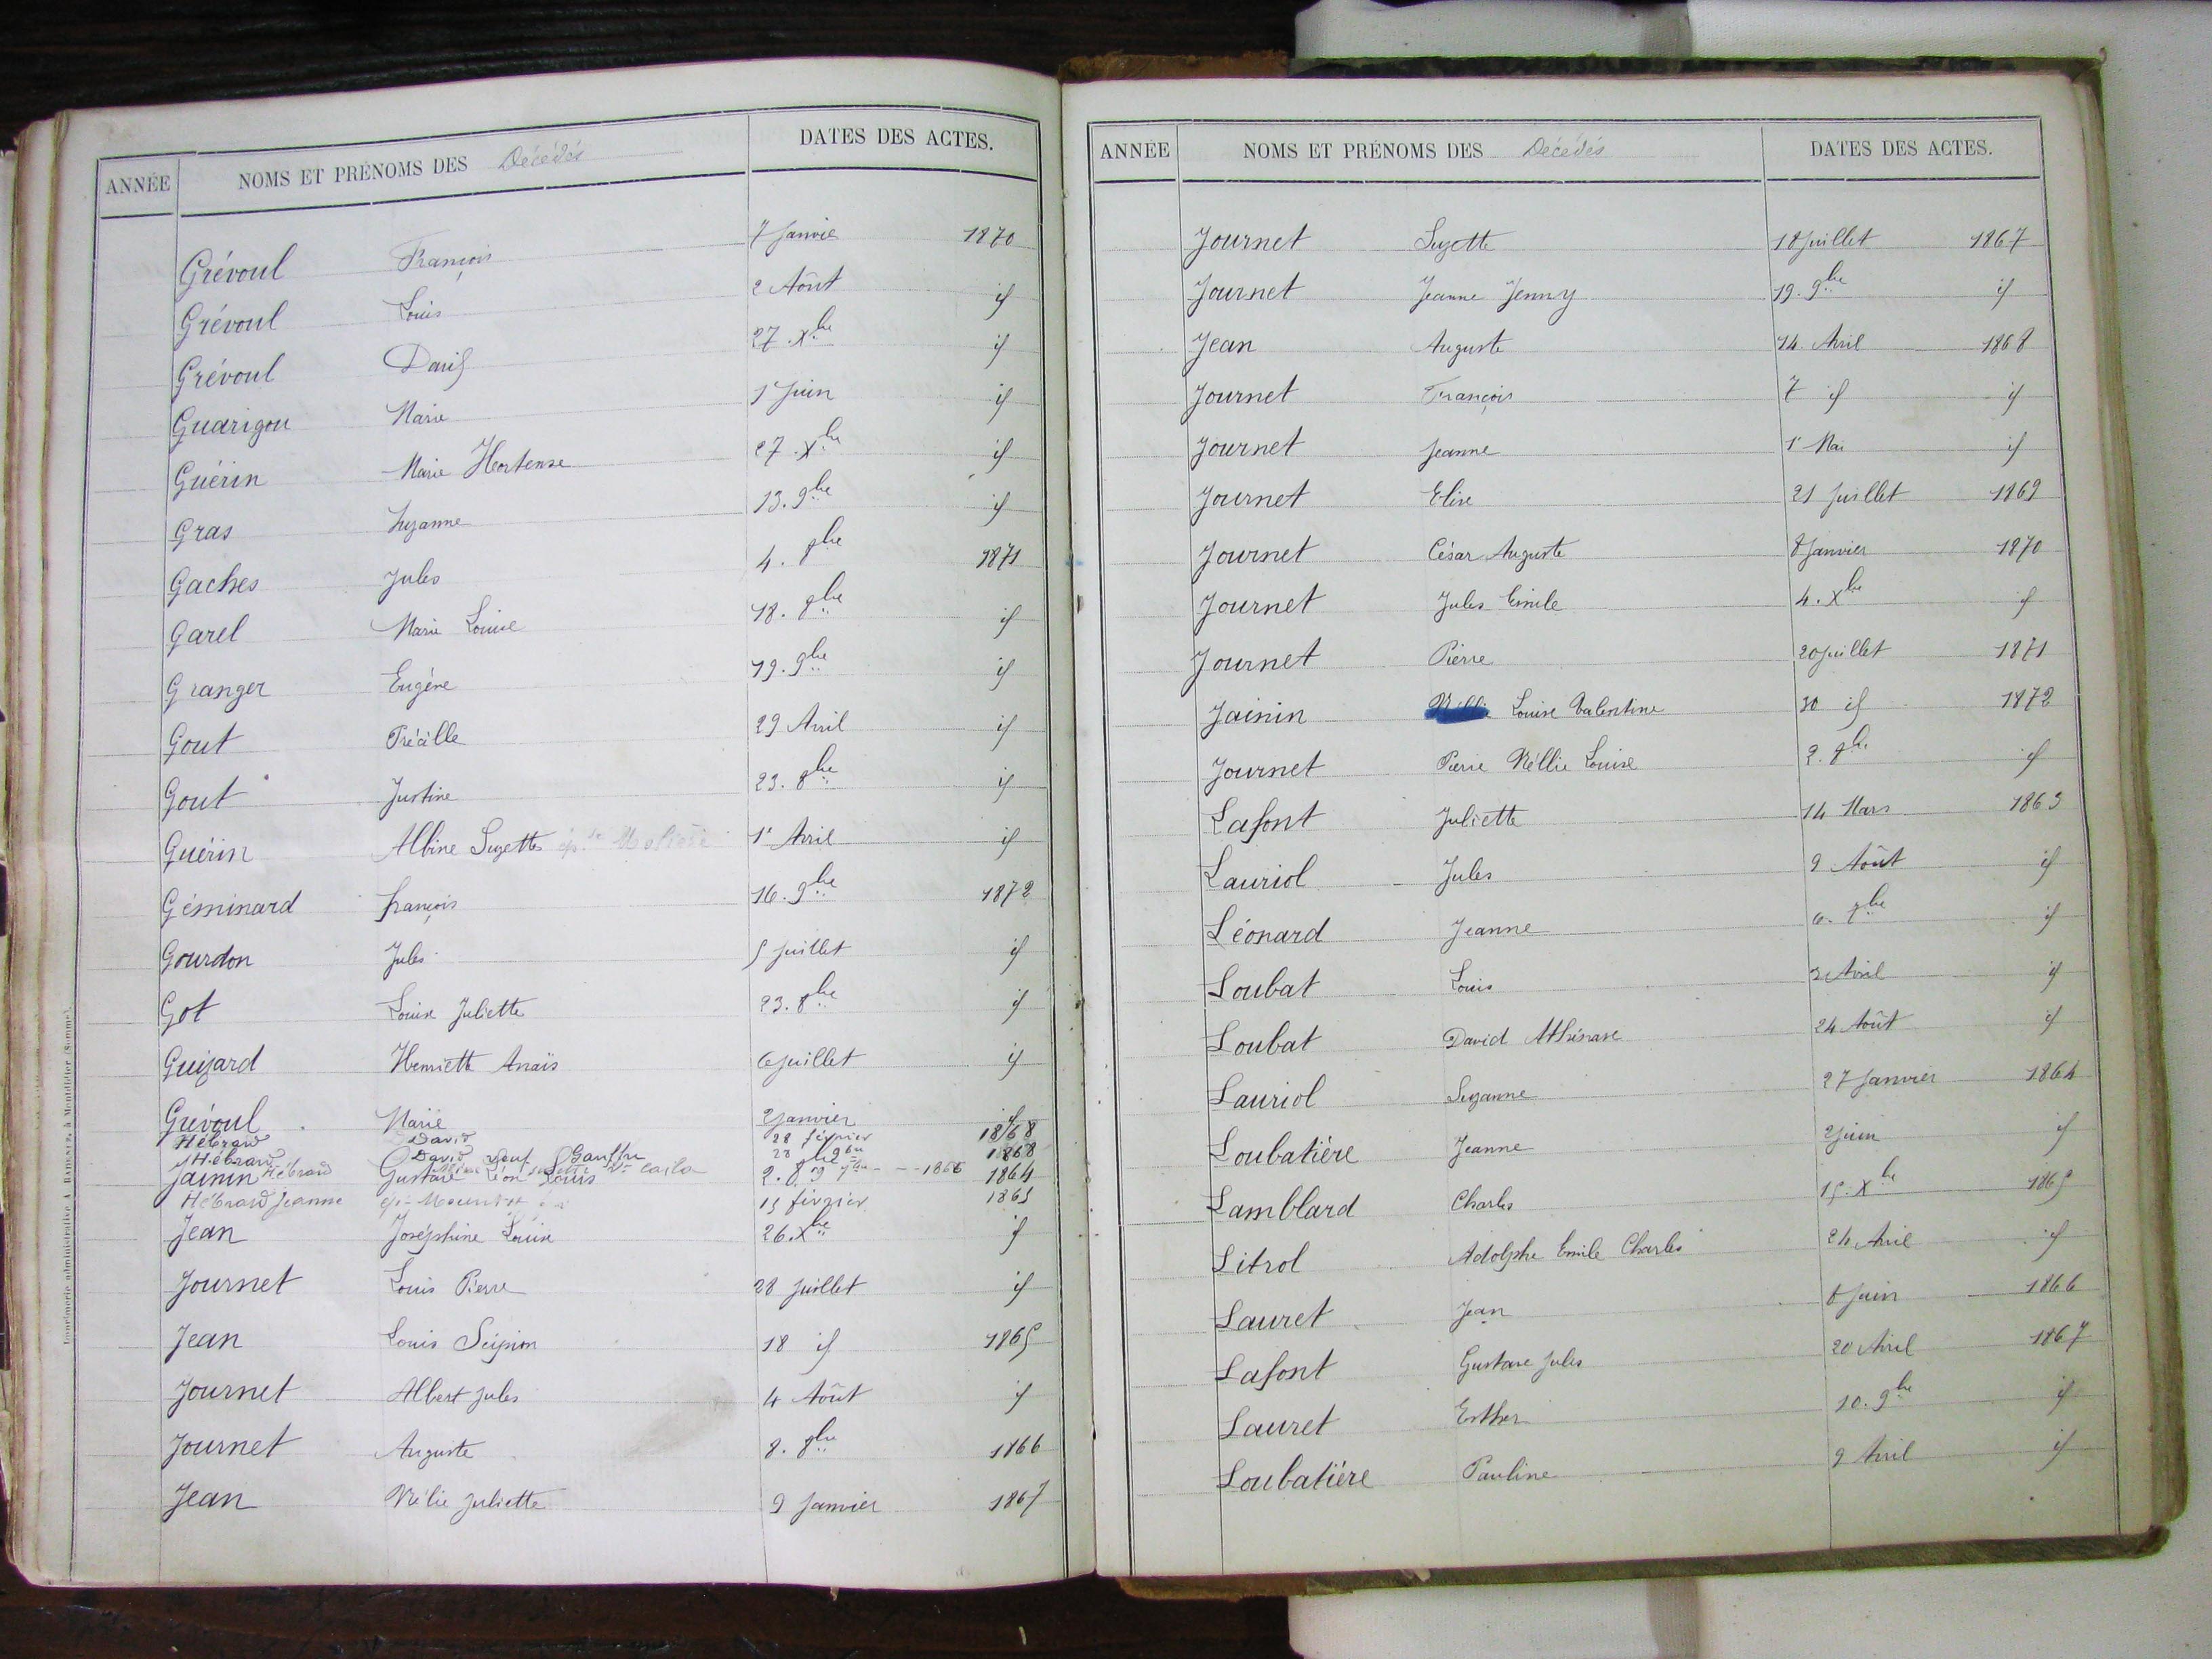 ANNÉE NOMS ET PRÉNOMS DES Décédés DATES DES ACTES.
Grévoul François 7 Janvie 1870
Grévoul Louis 2 Août id
Grévoul David 27. Xbre id
Guarigou Marie 1r Juin id
Guérin Marie Hortense 27. Xbre id
Gras Suzanne 13. 9bre id
Gaches Jules 4. 8bre 1871
Garel Marie Louise 18. 8bre id
Granger Eugéne 19. 9bre id
Gout 29 Avril id
Gout Justine 23. 8bre id
Guérin Albine Suzette 1r Avril id
Géminard françois 16. 9bre 1872
Gourdon Jules 5 Juillet id
Got Louise Juliette 23. 8bre id
Guizard Henriette Anaïs 6 Juillet id
Grévoul Marie 2 Janvier id
Hébrard David 28 février 1868
Hébrard David 28 1868
Jainin Hébrard Gustave Léon Louis 2. 1866 1864
Hébrard Jeanne 15 février 1865
Jean Joséphine Louise 26. Xbre id
Journet Louis Pierre 28 Juillet id
Jean Louis 18 id 1865
Journet Albert Jules 4 Août id
Journet Auguste 8. 8bre 1866
Jean Juliette 9 Janvier 1867
ANNÉE NOMS ET PRÉNOMS DES Décédés DATES DES ACTES.
Journet Suzette 18 Juillet 1867
Journet Jeanne Jenny 19. 9bre id
Jean Auguste 14 Avril 1868
Journet François 7 id id
Journet Jeanne 1r Mai id
Journet Elise 21 Juillet 1869
Journet César Auguste 8 Janvier 1870
Journet Jules Emile 4. Xbre id
Journet Pierre 20 Juillet 1871
Jainin Néllie Louise Valentine 30 id 1872
Journet Pierre Néllie Louise 2. 8bre id
Lafont Juliette 14 Mars 1863
Lauriol Jules 9 Août id
Léonard Jeanne 6. 7bre id
Loubat Louis 3 Avril id
Loubat David Athénase 24 Août id
Lauriol Suzanne 27 Janvier 1864
Loubatiére Jeanne 2 Juin id
Lamblard Charles 15. Xbre 1865
Litrol Adolphe Emile Charles 24 Avril id
Lauret Jean 8 Juin 1866
Lafont Gustave Jules 20 Avril 1867
Lauret Esther 10. 9bre id
Loubatiére Pauline 9 Avril id